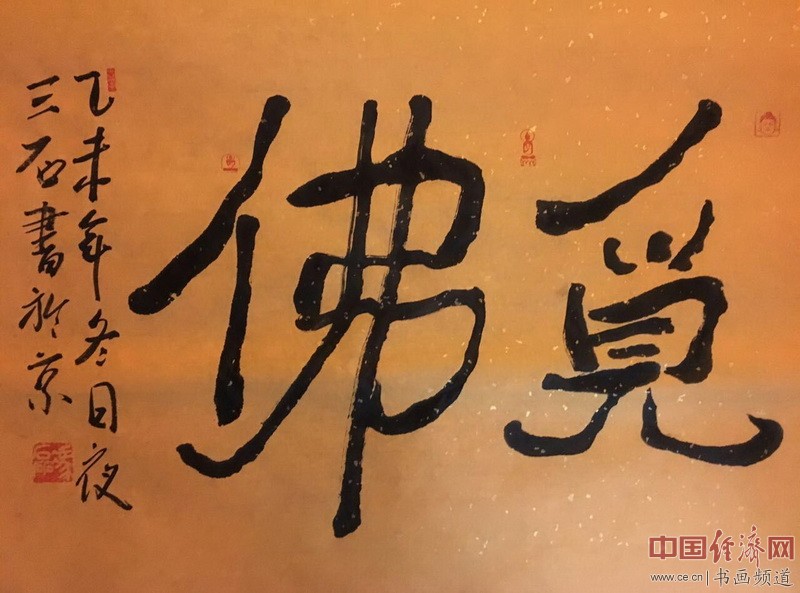 覓佛
乙未年冬日夜
三石書於京
中国经濟网
www.ce.cn|书画频道